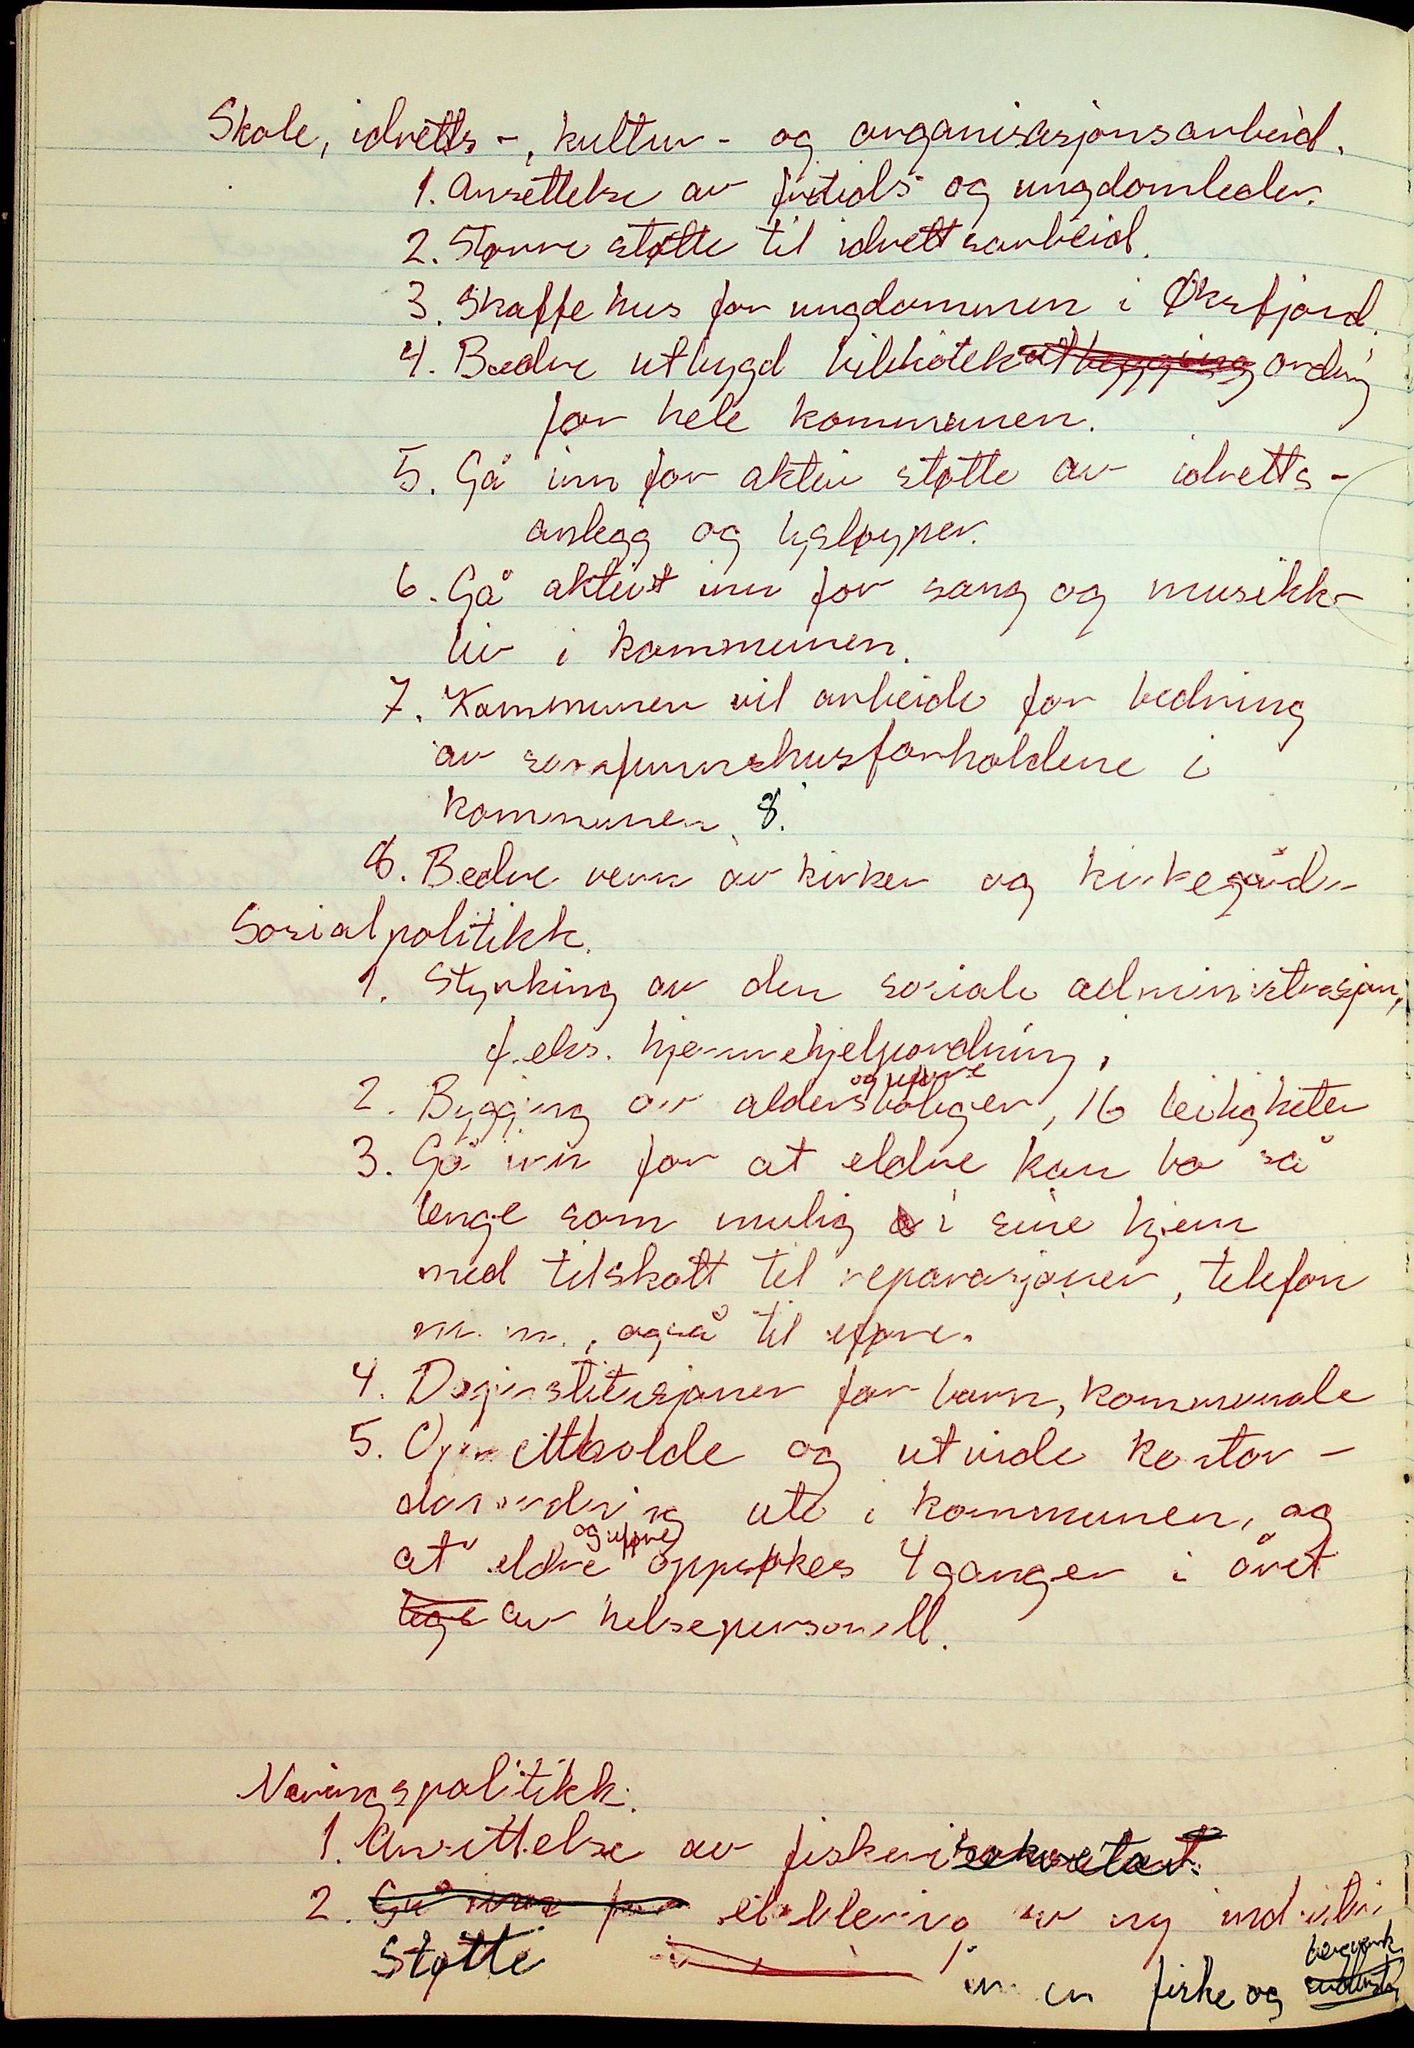 Skole, idretts-, kultur- og organisasjonsarbeid.
1. Ansettelse av fritids- og ungdomsleder.
2. Større støtte til idrettsarbeid.
3. Skaffe hus for ungdommen i Øksfjord.
4. Bedre utbygd bibliotekutbygging ordning
for hele kommunen.
5. Gå inn for aktiv støtte av idretts-
anlegg og lysløyper.
6. Gå aktivt inn for sang og musikk-
liv i kommunen.
7. Kommunen vil arbeide for bedring
av samfunnshusforholdene i
kommunen. 8.
8. Bedre vern av kirker og kirkegård
Sosialpolitikk.
1. Styrking av den sosiale administrasjon,
f.eks. hjemmehjelpordning,
og uføre
2. Bygging av aldersboliger, 16 leiligheter
3. Gå inn for at eldre kan bo så
lenge som mulig i sine hjem
med tilskott til reparasjoner, telefon
m.m., også til uføre.
4. Daginstitusjoner for barn, kommunale
5. Opprettholde og utvide kontor-
dagordning ute i kommunen, og
og uføre
at eldre oppsøkes 4 ganger i året
lege av helsepersonell.
Næringspolitikk.
1. Ansettelse av fiskerisekretær
2. Gå inn for etablering av ny industri
Støtte
innen fiske og bergverk
industri